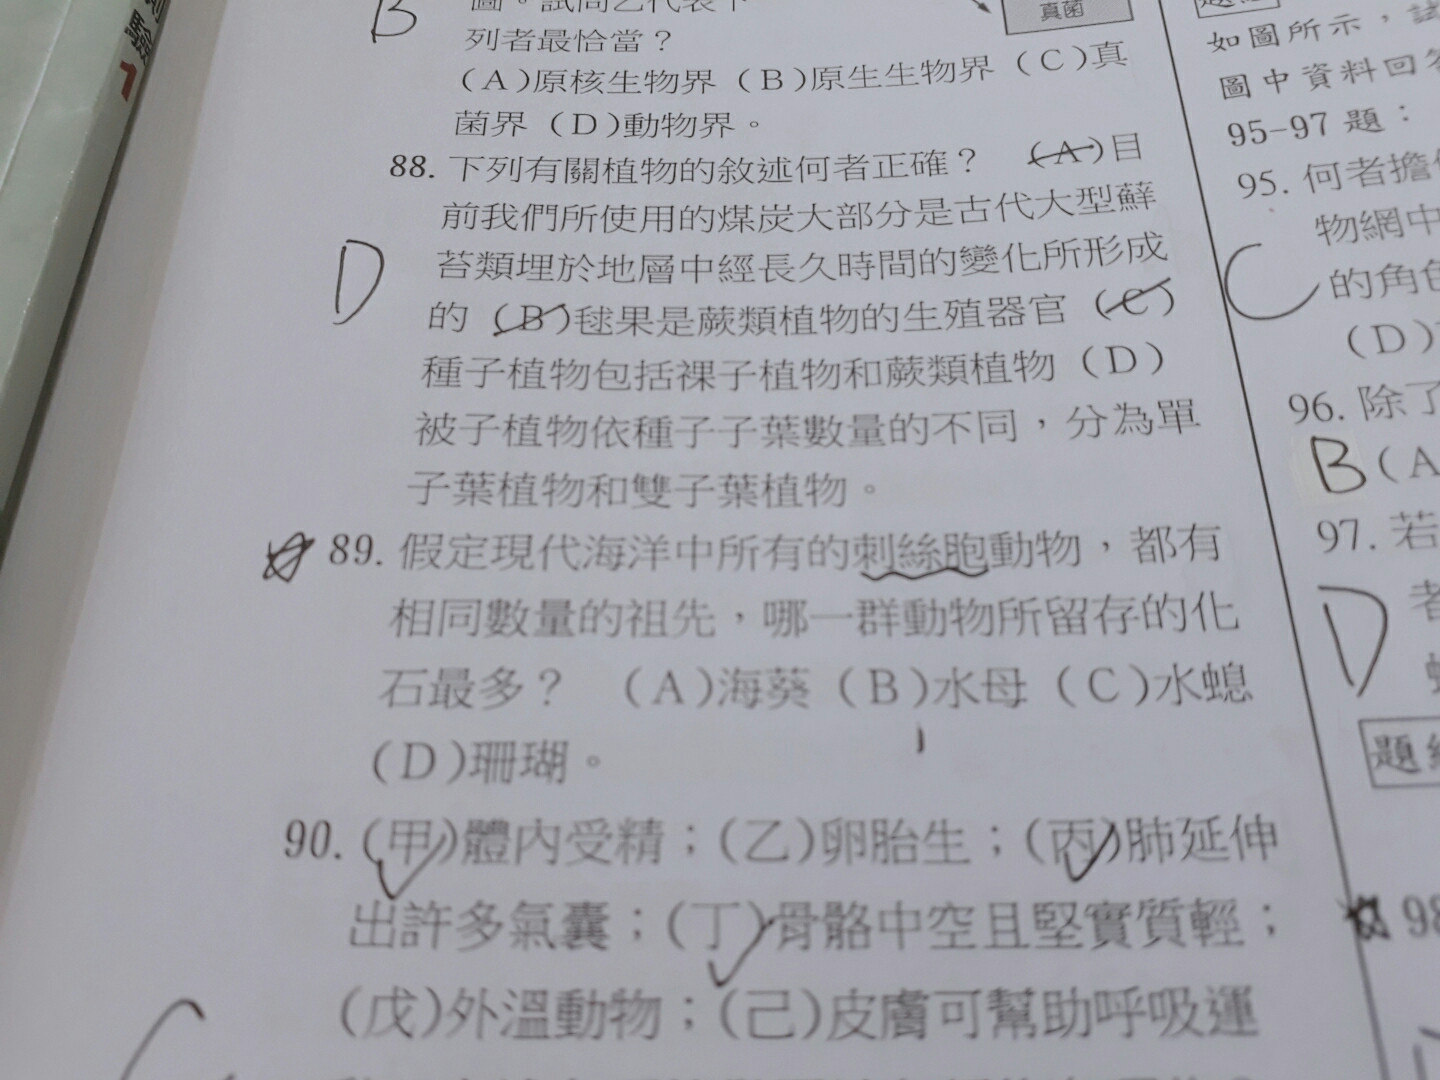 驗
1
B
圖。試問乙代表下
列者最恰當？
(A)原核生物界 (B)原生生物界 (C)真
菌界 (D)動物界。
88. 下列有關植物的敘述何者正確？ (A)目
前我們所使用的煤炭大部分是古代大型蘚
苔類埋於地層中經長久時間的變化所形成
的 (B)毬果是蕨類植物的生殖器官 (C)
種子植物包括裸子植物和蕨類植物 (D)
被子植物依種子子葉數量的不同，分為單
子葉植物和雙子葉植物。
D
89. 假定現代海洋中所有的刺絲胞動物，都有
相同數量的祖先，哪一群動物所留存的化
石最多？ (A)海葵 (B)水母 (C)水螅
(D)珊瑚。
90. (甲)體內受精；(乙)卵胎生；(丙)肺延伸
出許多氣囊；(丁)骨骼中空且堅實質輕；
(戊)外溫動物；(己)皮膚可幫助呼吸運
真菌
如圖所示，試
圖中資料回答
95-97 題：
95. 何者擔
物網中
C
的角色
(D)
96. 除了
B (A
97. 若
D
題組
98